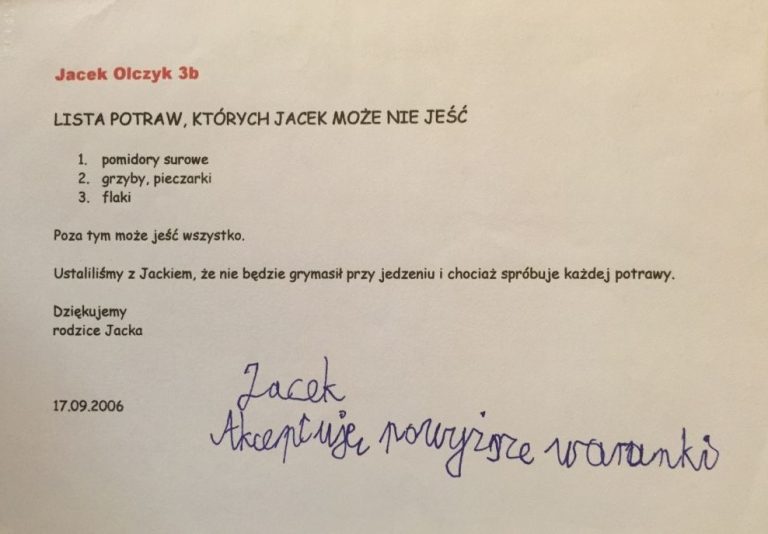 Jacek Olczyk 3b
LISTA POTRAW, KTÓRYCH JACEK MOŻE NIE JEŚĆ
1. pomidory surowe
2. grzyby, pieczarki
3. flaki
Poza tym może jeść wszystko.
Ustaliliśmy z Jackiem, że nie będzie grymasił przy jedzeniu i chociaż spróbuje każdej potrawy.
Dziękujemy
rodzice Jacka
17.09.2006
Jacek
Akceptuję powyższe waranki